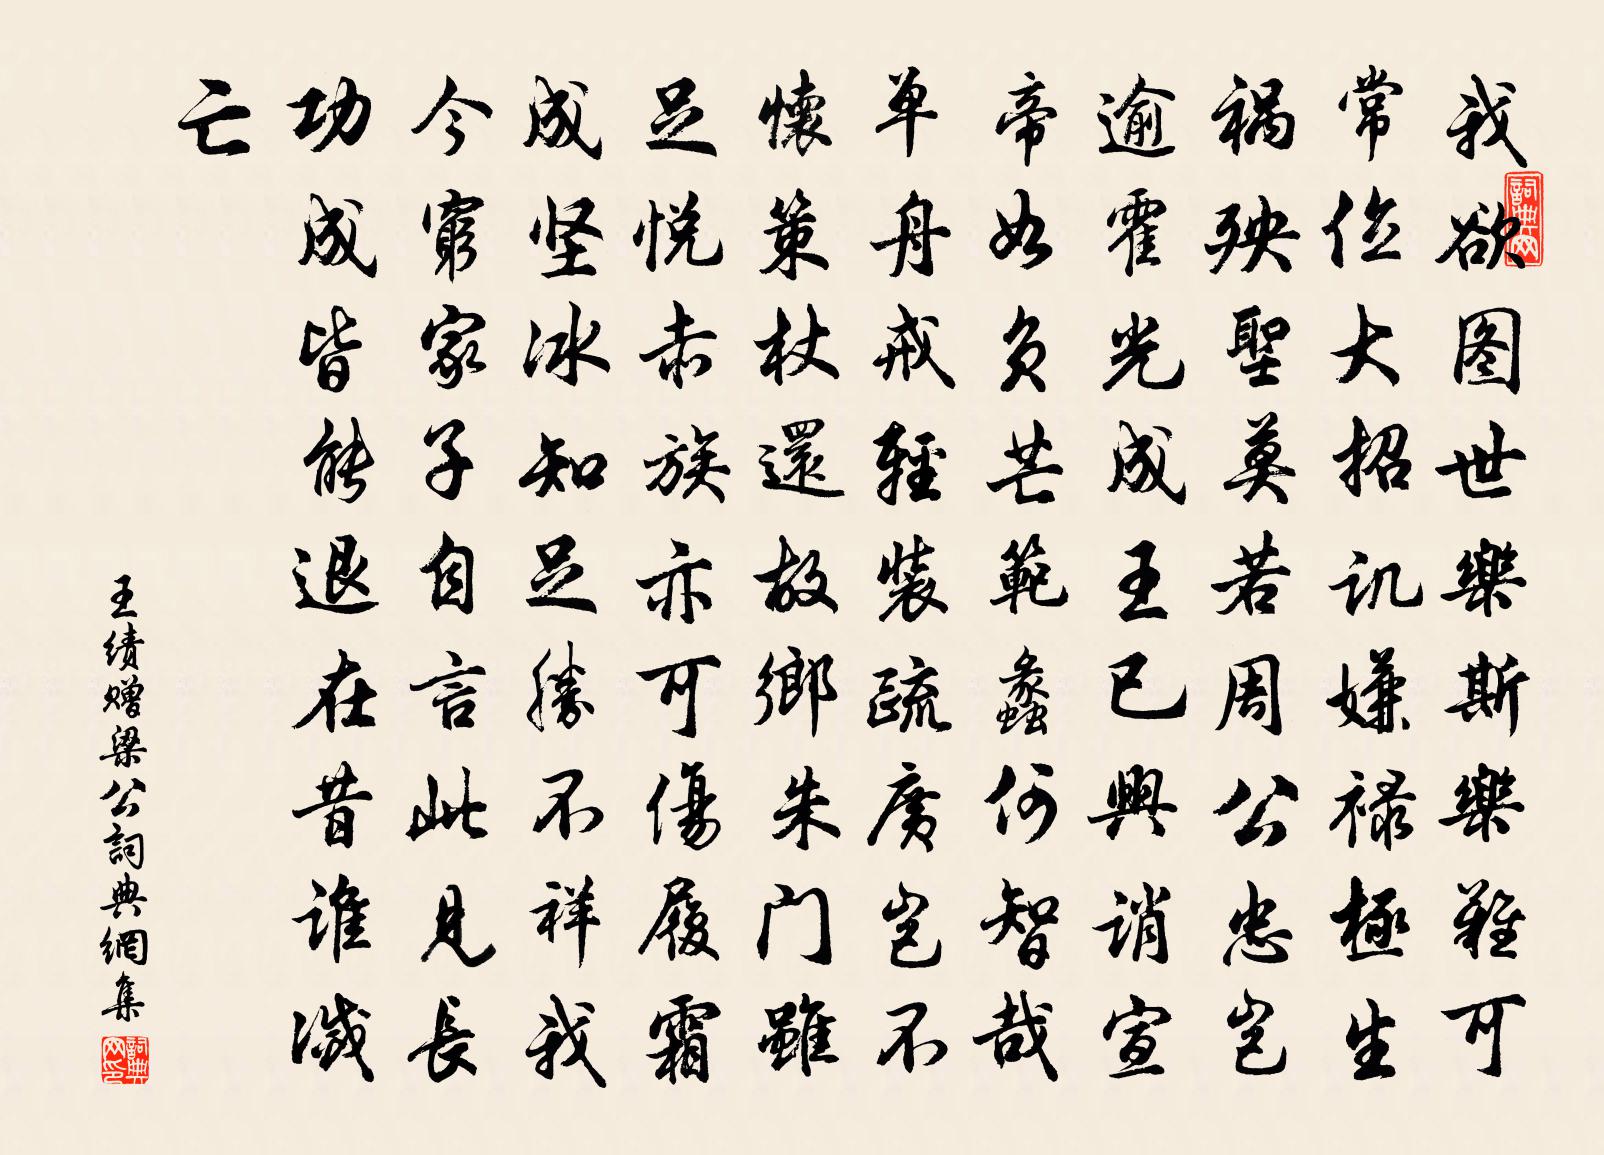 我欲图世樂斯樂難可
常位大招讥嫌禄極生
祸殃聖莫若周公忠岂
逾霍光成王已興诮宣
帝如负芒範蠡何智哉
单舟戒輕裝疏廣岂不
懷策杖還故鄉朱门雖
足悦赤族亦可傷履霜
成坚冰知足勝不祥我
今窮家子自言此見長
功成皆能退在昔谁滅
亡
王绩赠梁公詞典網集
詞典网
詞典网印